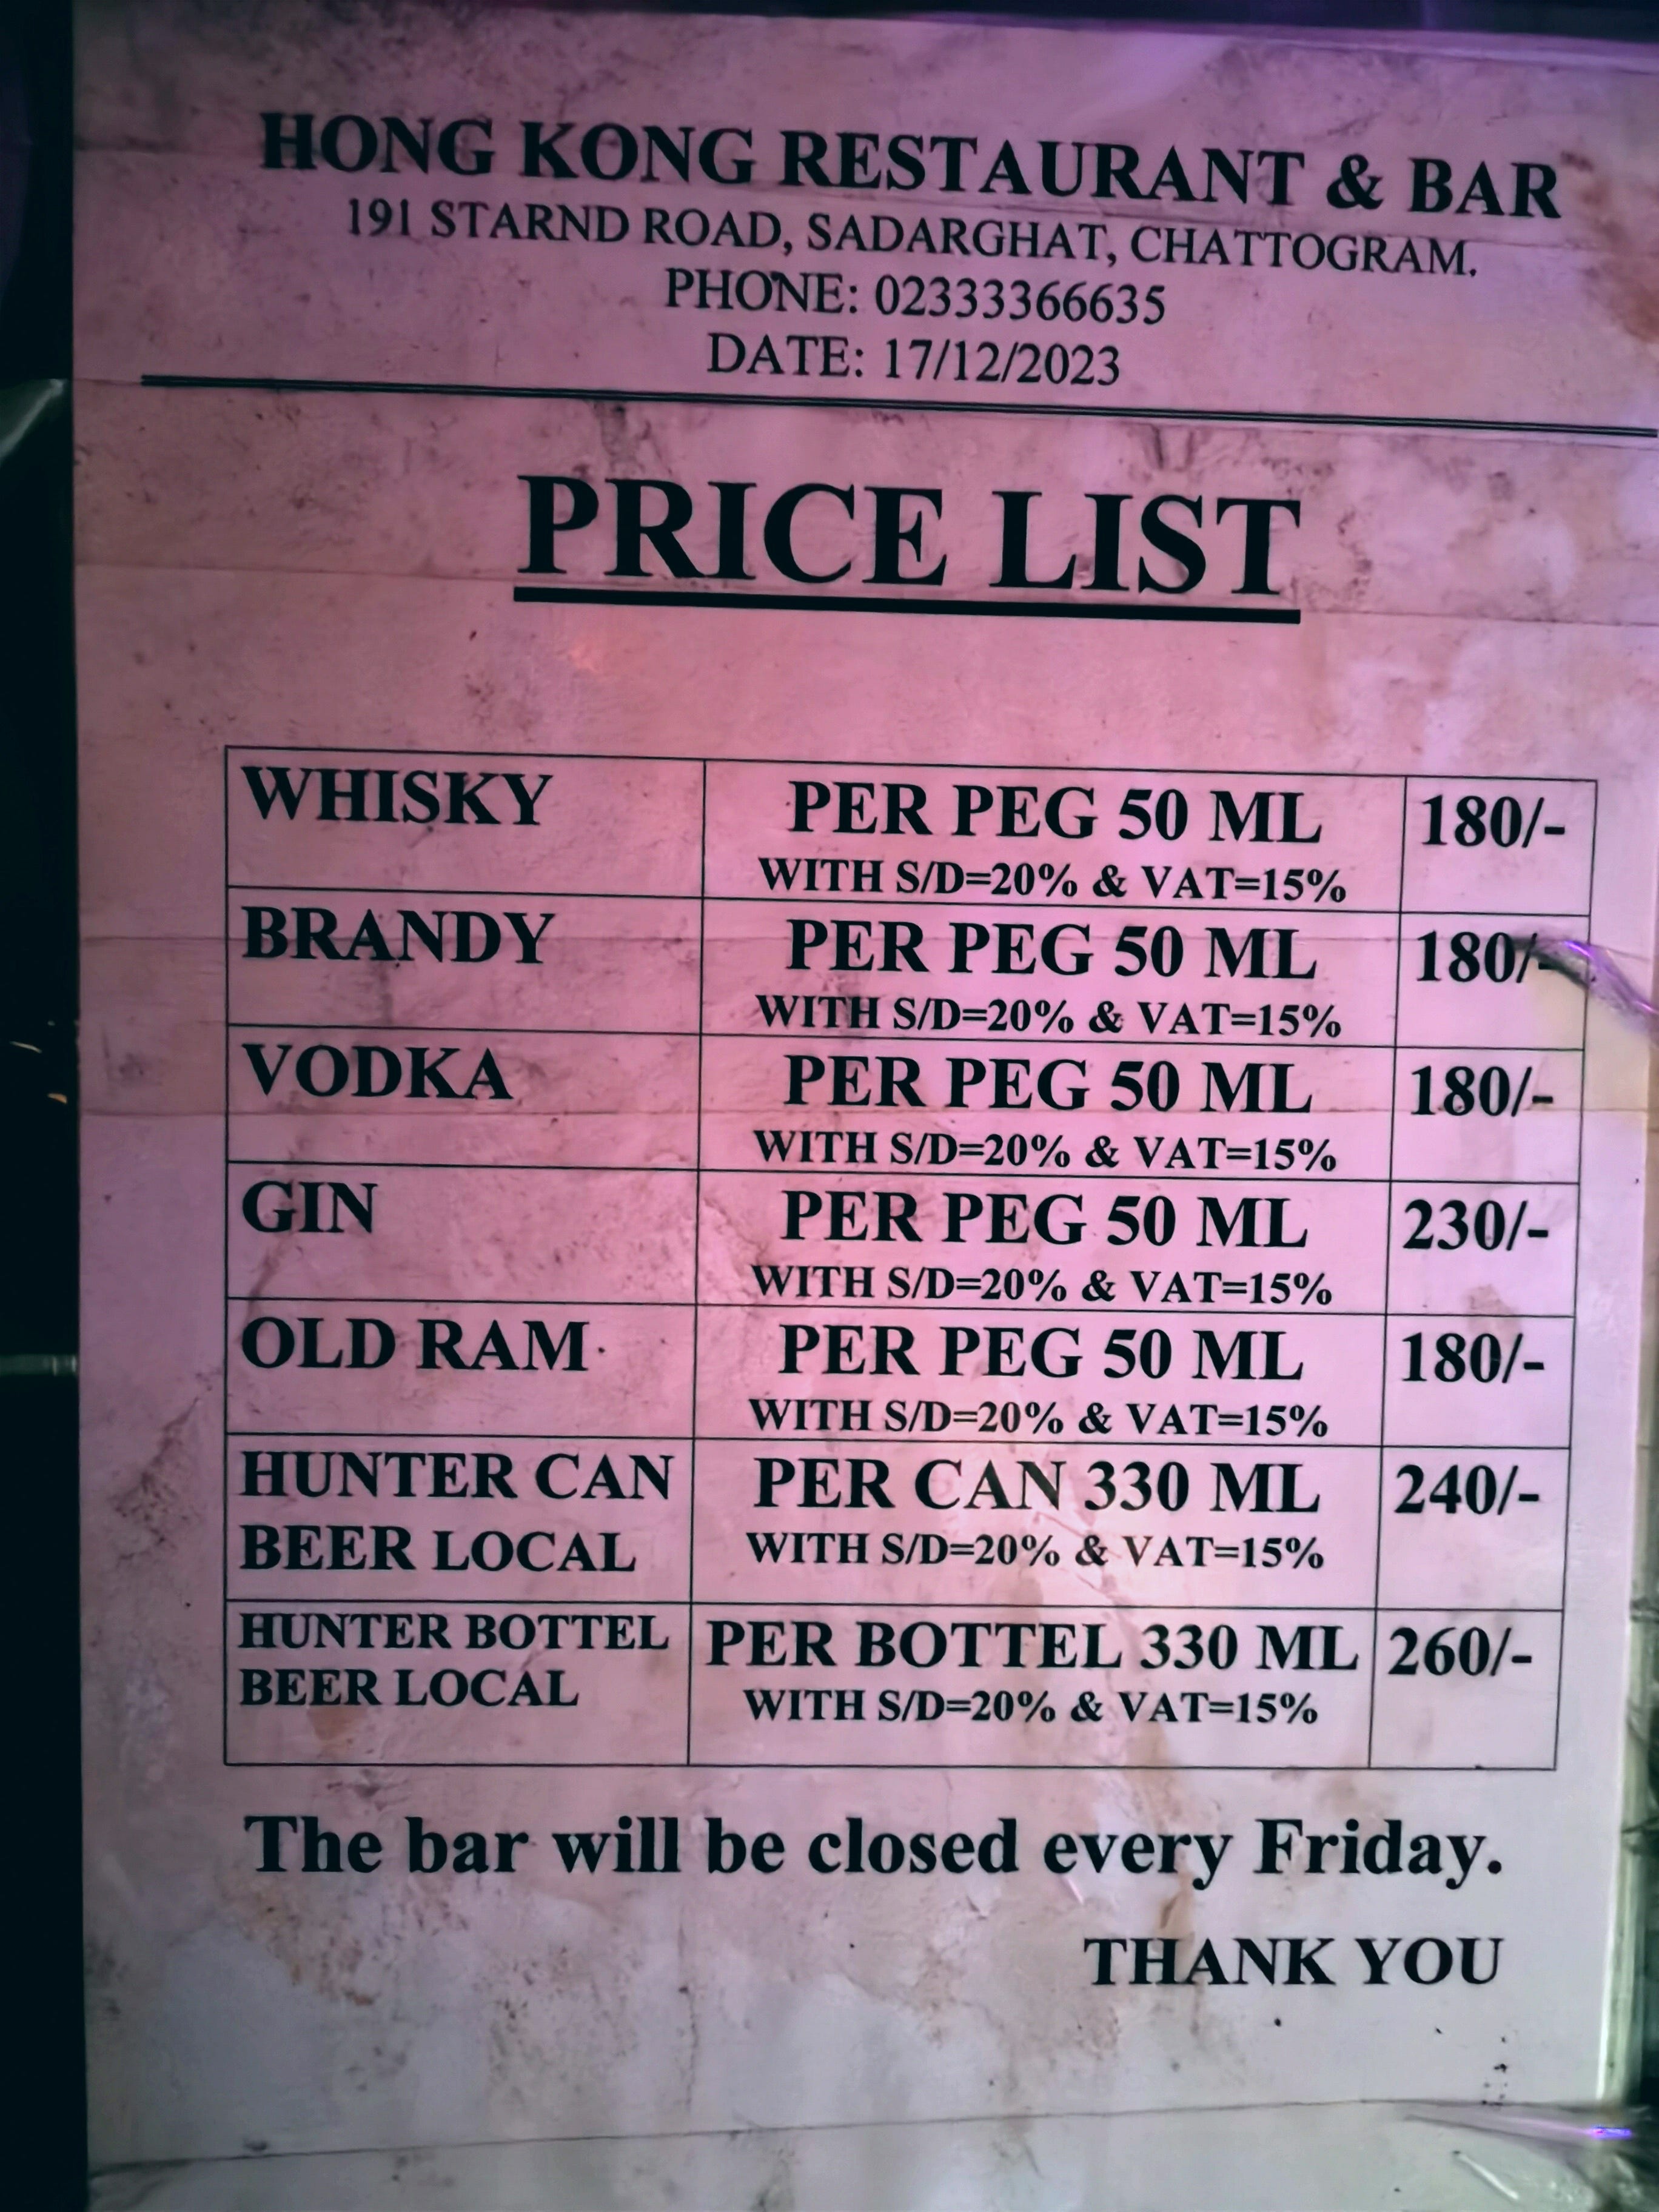 HONG KONG RESTAURANT & BAR
191 STARND ROAD, SADARGHAT, CHATTOGRAM.
PHONE: 02333366635
DATE: 17/12/2023
PRICE LIST
WHISKY PER PEG 50 ML 180/-
WITH S/D=20% & VAT=15%
BRANDY PER PEG 50 ML 180/-
WITH S/D=20% & VAT=15%
VODKA PER PEG 50 ML 180/-
WITH S/D=20% & VAT=15%
GIN PER PEG 50 ML 230/-
WITH S/D=20% & VAT=15%
OLD RAM PER PEG 50 ML 180/-
WITH S/D=20% & VAT=15%
HUNTER CAN PER CAN 330 ML 240/-
BEER LOCAL WITH S/D=20% & VAT=15%
HUNTER BOTTEL PER BOTTEL 330 ML 260/-
BEER LOCAL WITH S/D=20% & VAT=15%
The bar will be closed every Friday.
THANK YOU